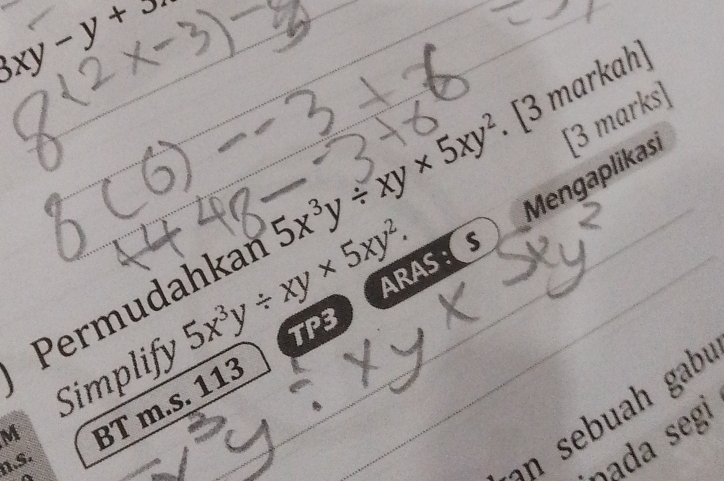 3xy − y + 3
8(2x−3)
8(6) −−3+6
48−−3+6
Permudahkan 5x³y ÷ xy × 5xy². [3 markah]
Simplify 5x³y ÷ xy × 5xy². [3 marks]
BT m.s. 113 TP3 ARAS : S Mengaplikasi
x³y ÷ xy × 5xy²
an sebuah gabu
pada segi
M
m.s.